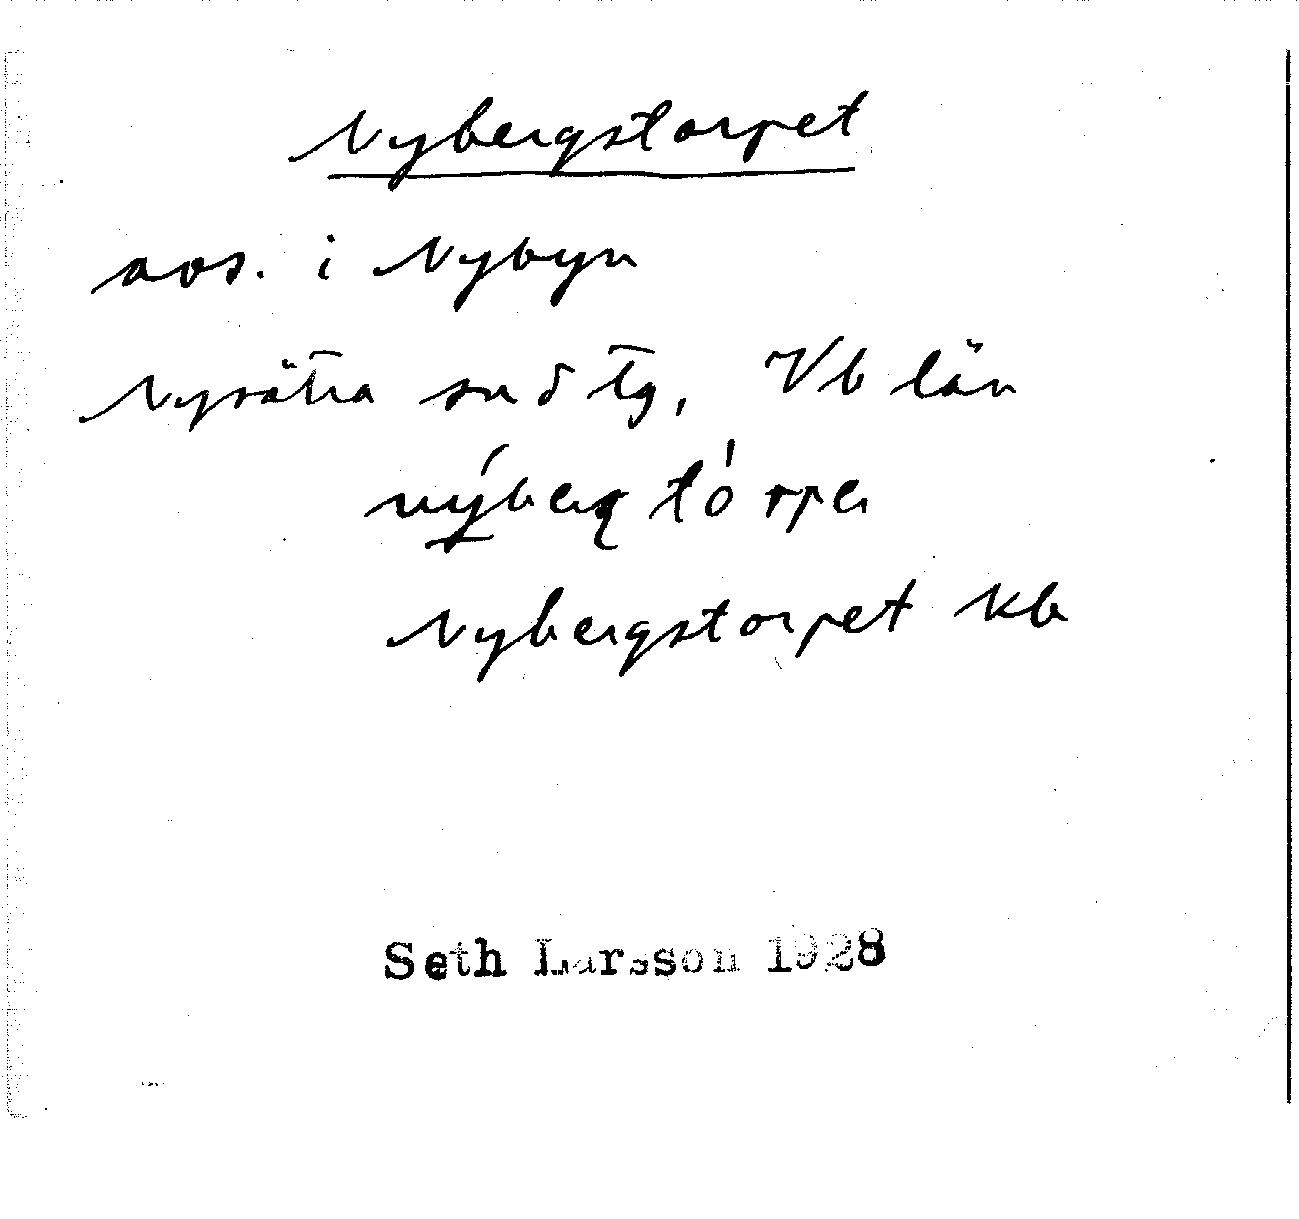 Nybergstorpet
avs. i Nybyn
Nysätra sn d tg, Vb län
Nybergstorpet kb
Seth Larsson 1928